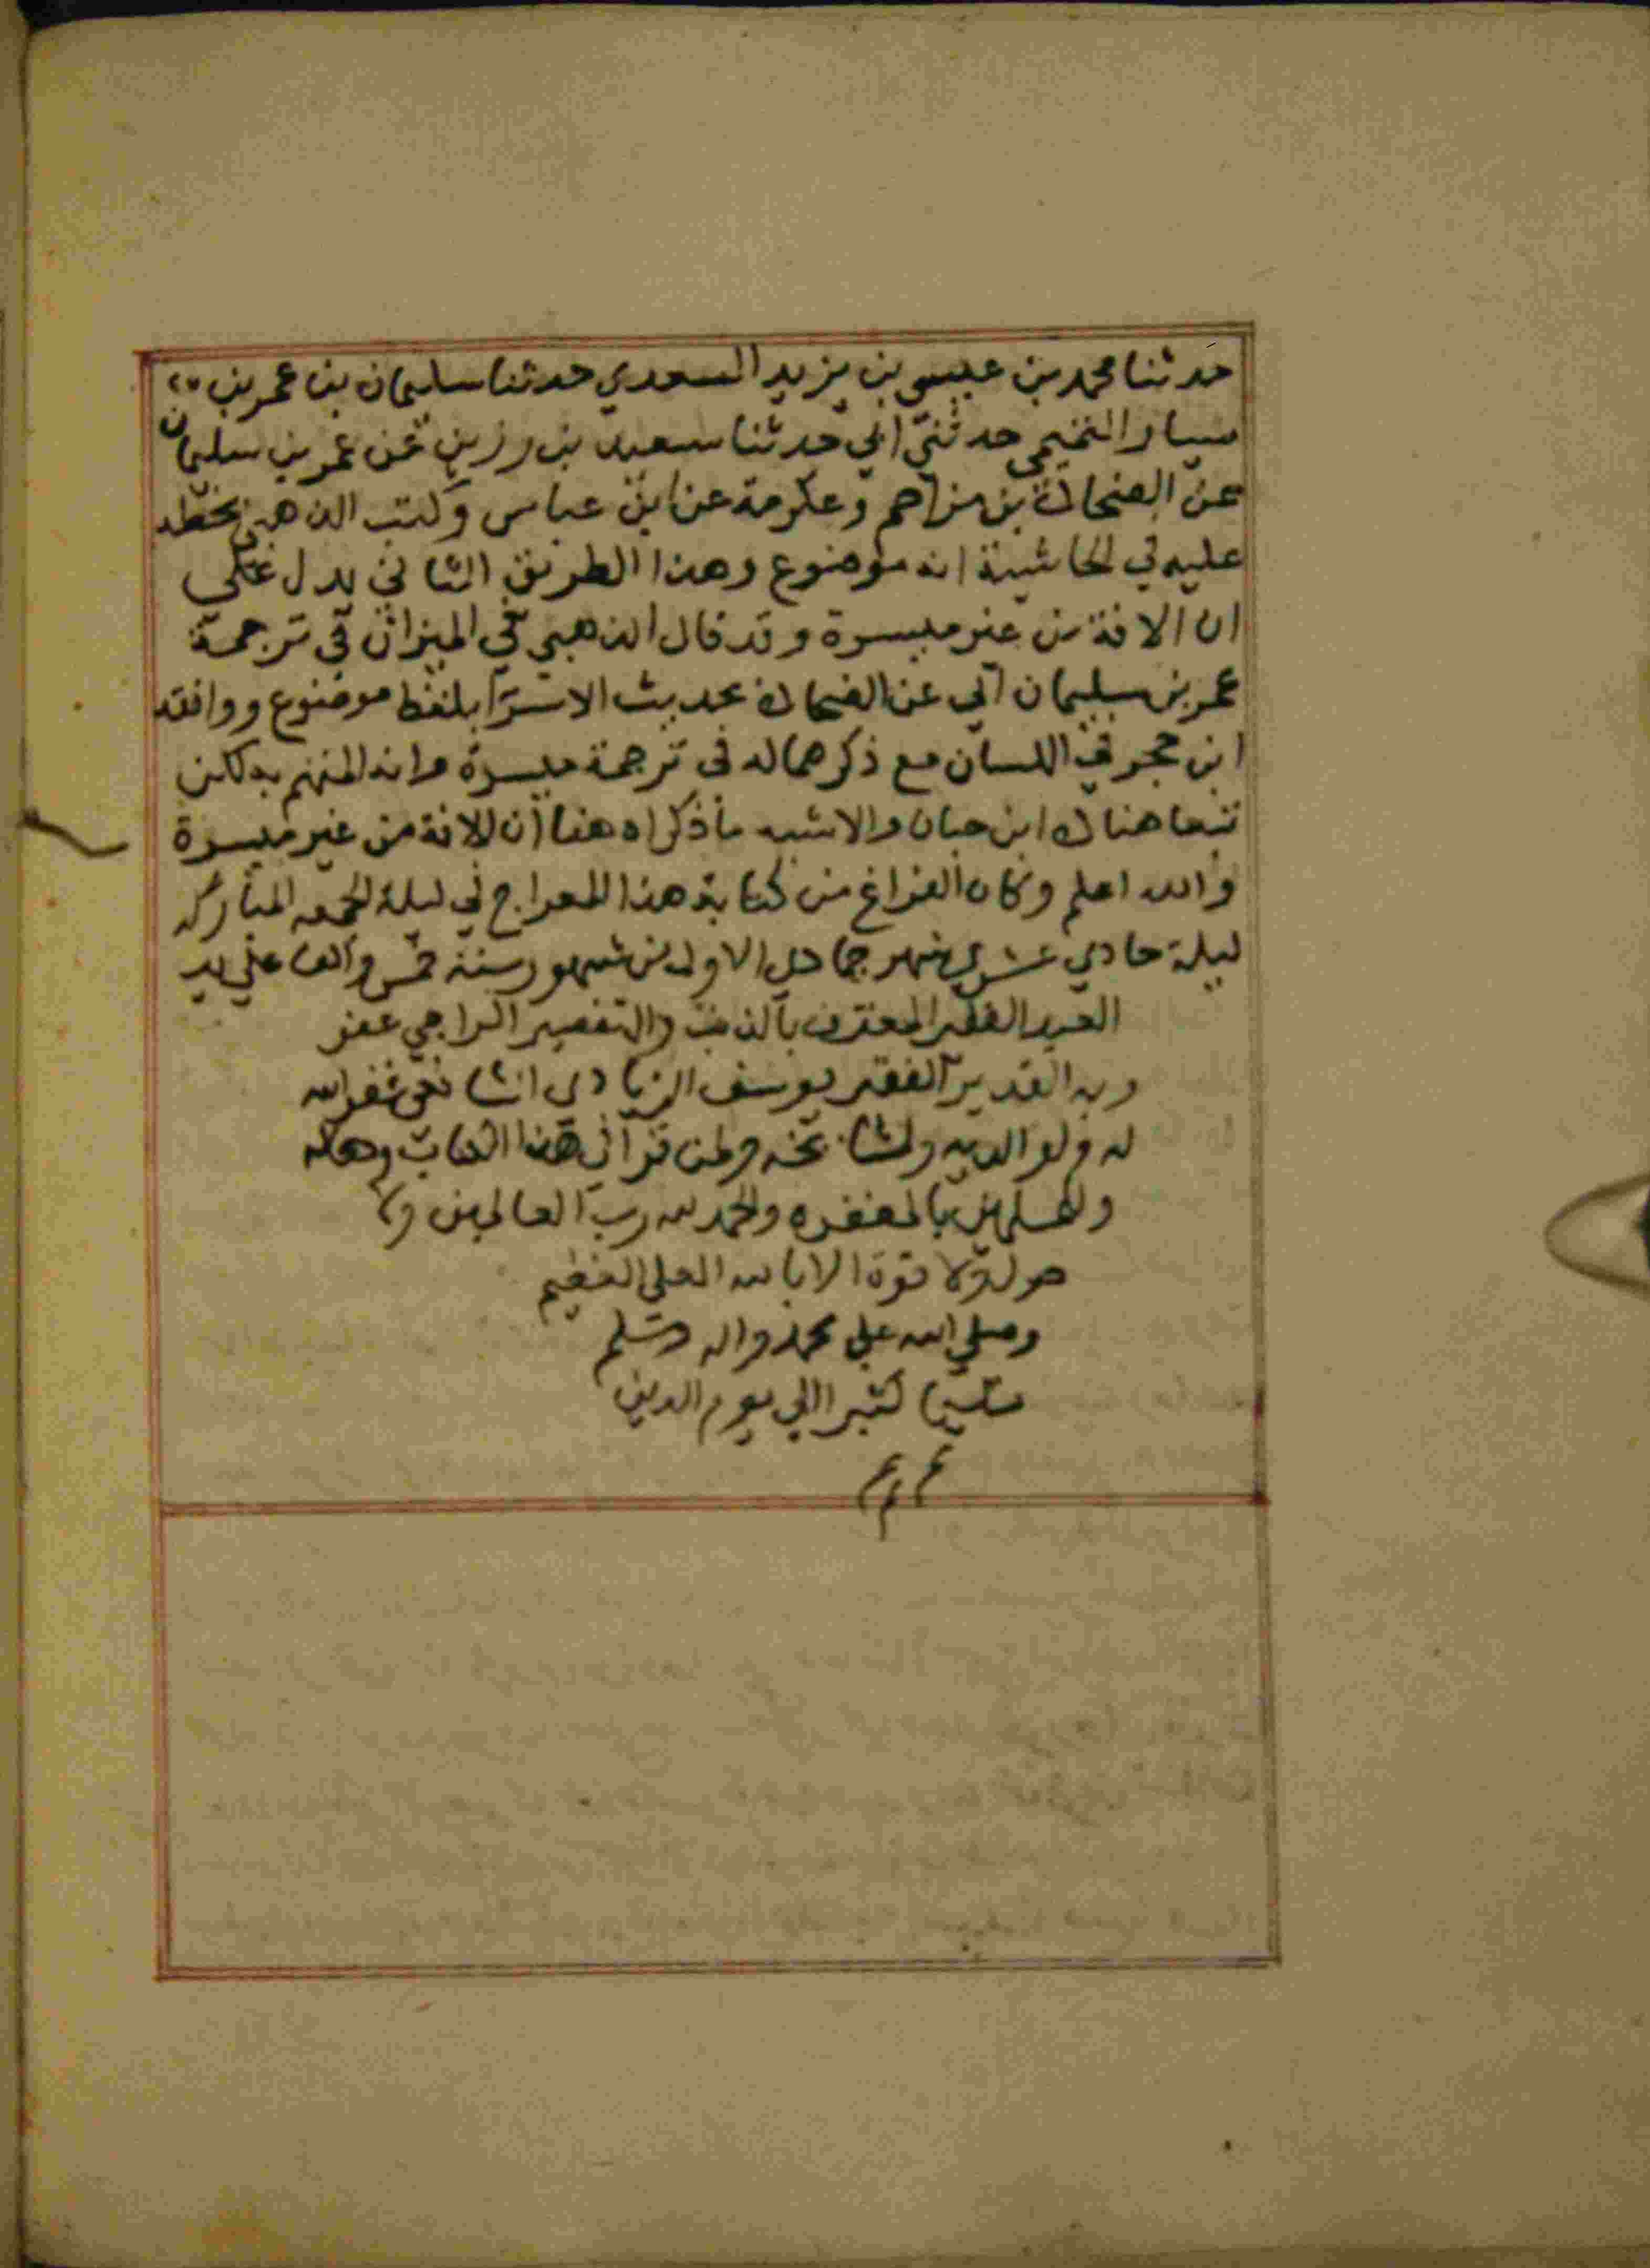 حدثنا محمد بن عيسى بن يزيد السعدي حدثنا سليمان بن عمر بن
سيار التميمي حدثني ابي حدثنا سعيد بن رزين عن عمر بن سليمان
عن الضحاك بن مزاحم وعكرمة عن ابن عباس وكتب الذهبي بخطه
عليه في الحاشية انه موضوع وهذا الطريق الثاني يدل علي
ان الافة من غير ميسرة وقد قال الذهبي في الميزان في ترجمة
عمر بن سليمان اتي عن الضحاك بحديث الاسرا بلفظ موضوع ووافقه
ابن حجر في اللسان مع ذكرهما له في ترجمة ميسرة وانه المتهم به لكن
تبعا هناك ابن حبان والاشبه ما ذكراه هنا ان الافة من غير ميسرة
والله اعلم وكان الفراغ من كتابة هذا المعراج في ليلة الجمعه المباركه
ليلة حادي عشري شهر جمادي الاول من شهور سنة خمس والف علي يد
العبد الفقير المعترف بالذنب والتقصير الراجي عفو
ربه القدير الفقير يوسف الزيادي الشافعي غفر الله
له ولوالديه ولمشايخه ولمن قرا في هذا الكتاب ودعا له
وللمسلمين بالمغفره والحمد لله رب العالمين ولا
حول ولا قوة الا بالله العلي العظيم
وصلي الله علي محمد واله وسلم
تسليما كثيرا الي يوم الدين
م م م